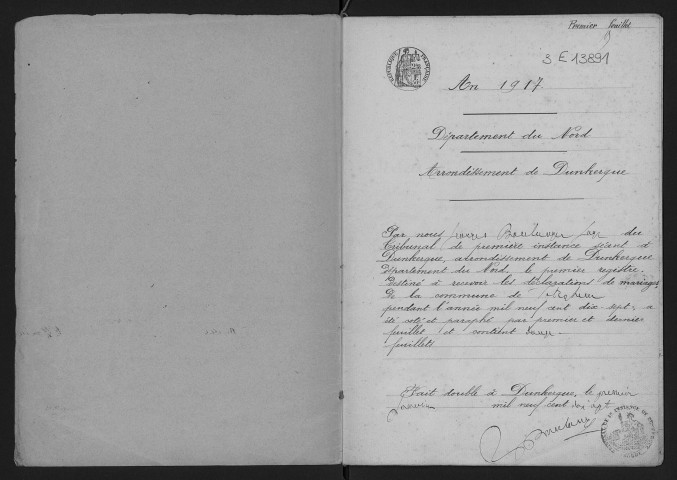 Premier feuillet
3 E 13891
RÉPUBLIQUE FRANÇAISE
An 1917.
Département du Nord
Arrondissement de Dunkerque
Par nous du
Tribunal de première instance séant à
Dunkerque, arrondissement de Dunkerque
département du Nord, le premier registre.
Destiné à recevoir les déclarations de mariages
De la commune de
pendant l'année mil neuf cent dix sept, a
été coté et paraphé par premier et dernier
feuillet et contient
feuillets
Fait double à Dunkerque, le premier
mil neuf cent dix sept